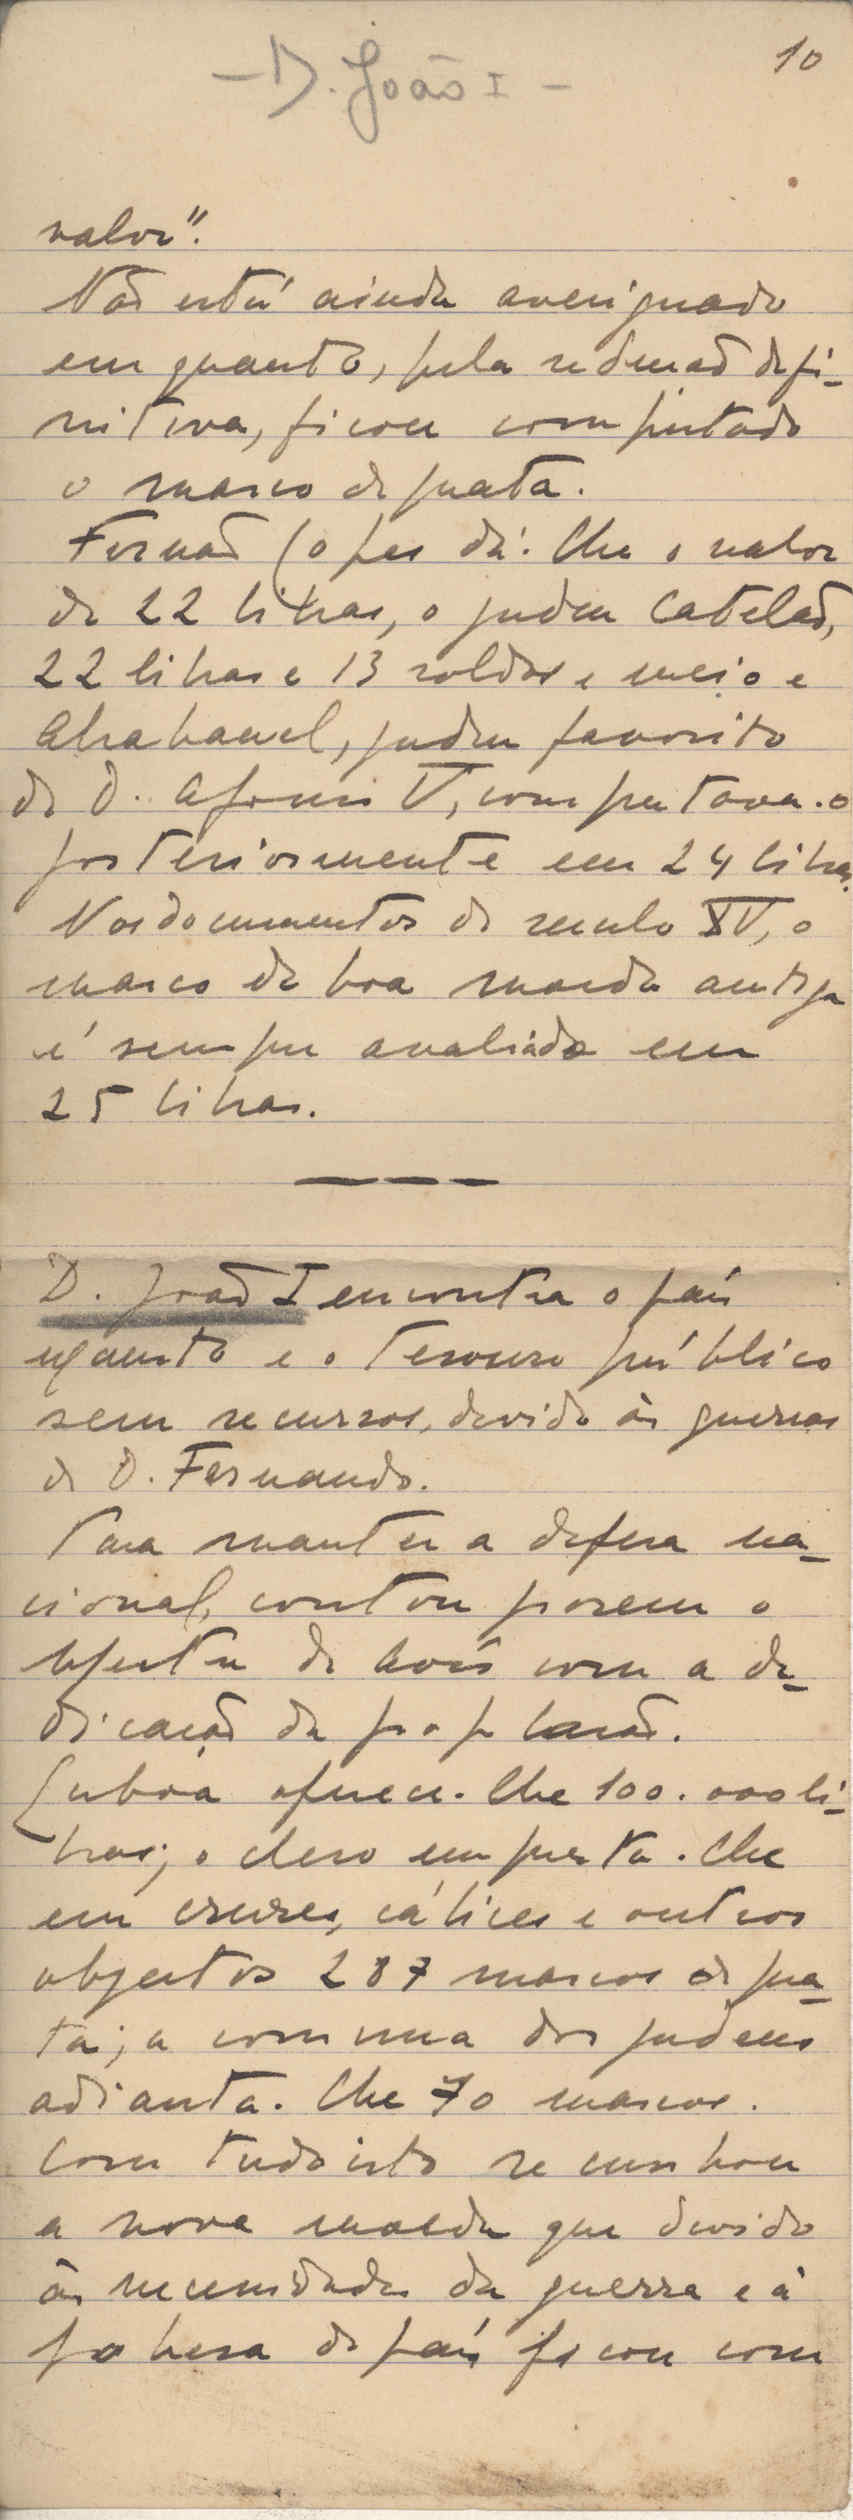 10
- D. João I -
valor".
Não está ainda averiguado
em quanto, pela redução defi-
nitiva, ficou computado
o marco de prata.
Fernão Lopes dá-lhe o valor
de 22 libras, o judeu Catelão,
22 libras e 13 soldos e meio e
Abrabanel, judeu favorito
de D. Afonso V, computava-o
posteriormente em 24 libras.
Nos documentos do seculo XV, o
marco de boa moeda antiga
é sempre avaliado em
25 libras.
D. João I encontra o país
exausto e o tesouro público
sem recursos, devido às guerras
de D. Fernando.
Para manter a defesa na-
cional, contou porem o
Mestre de Avis com a de-
dicação da população.
Lisboa oferece-lhe 100.000 li-
bras; o clero empresta-lhe
em cruzes, cálices e outros
objectos 287 marcos de pra-
ta; a comuna dos judeus
adianta-lhe 70 marcos.
Com tudo isto se cunhou
a nova moeda que devido
às necessidades da guerra e à
pobresa do país ficou com